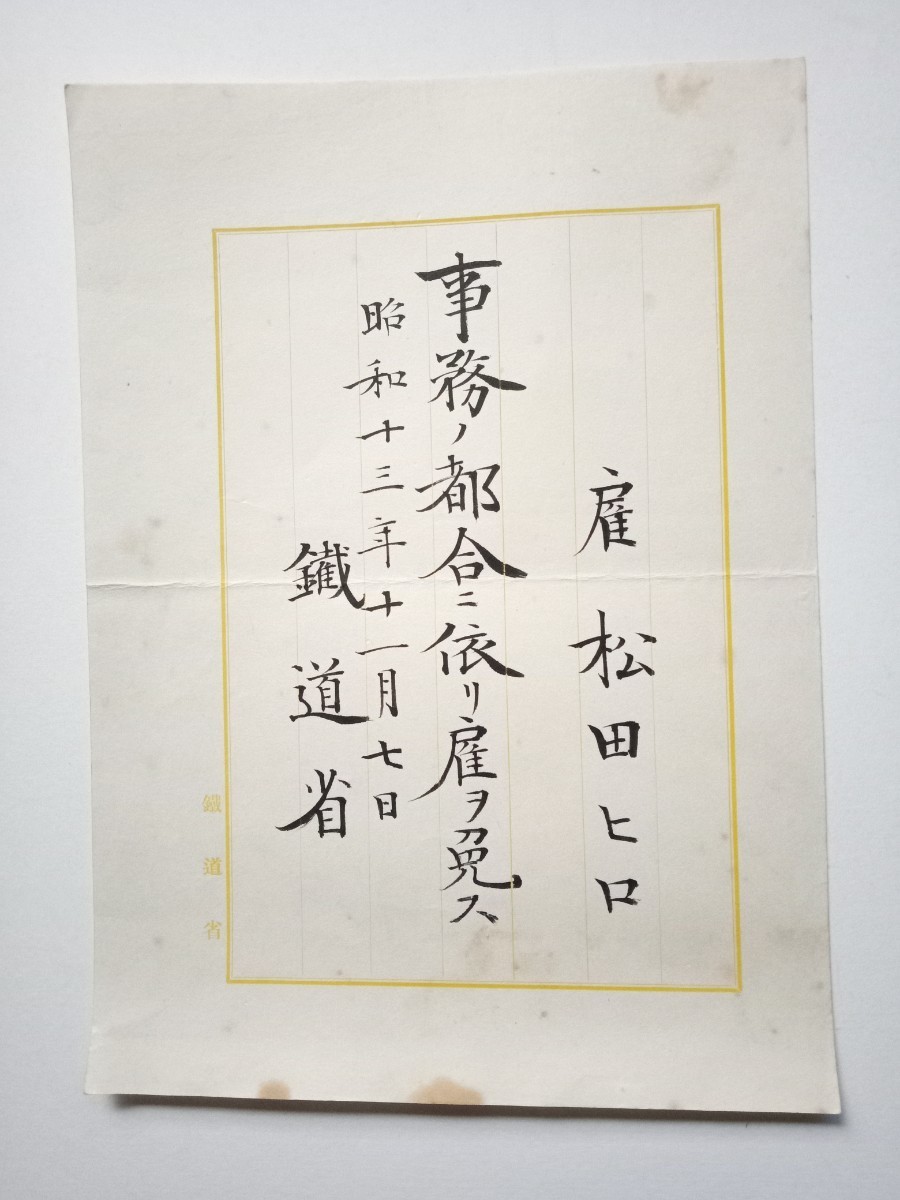 雇 松田ヒロ
事務ノ都合ニ依リ雇ヲ免ス
昭和十三年十一月七日
鐵道省
鐵道省